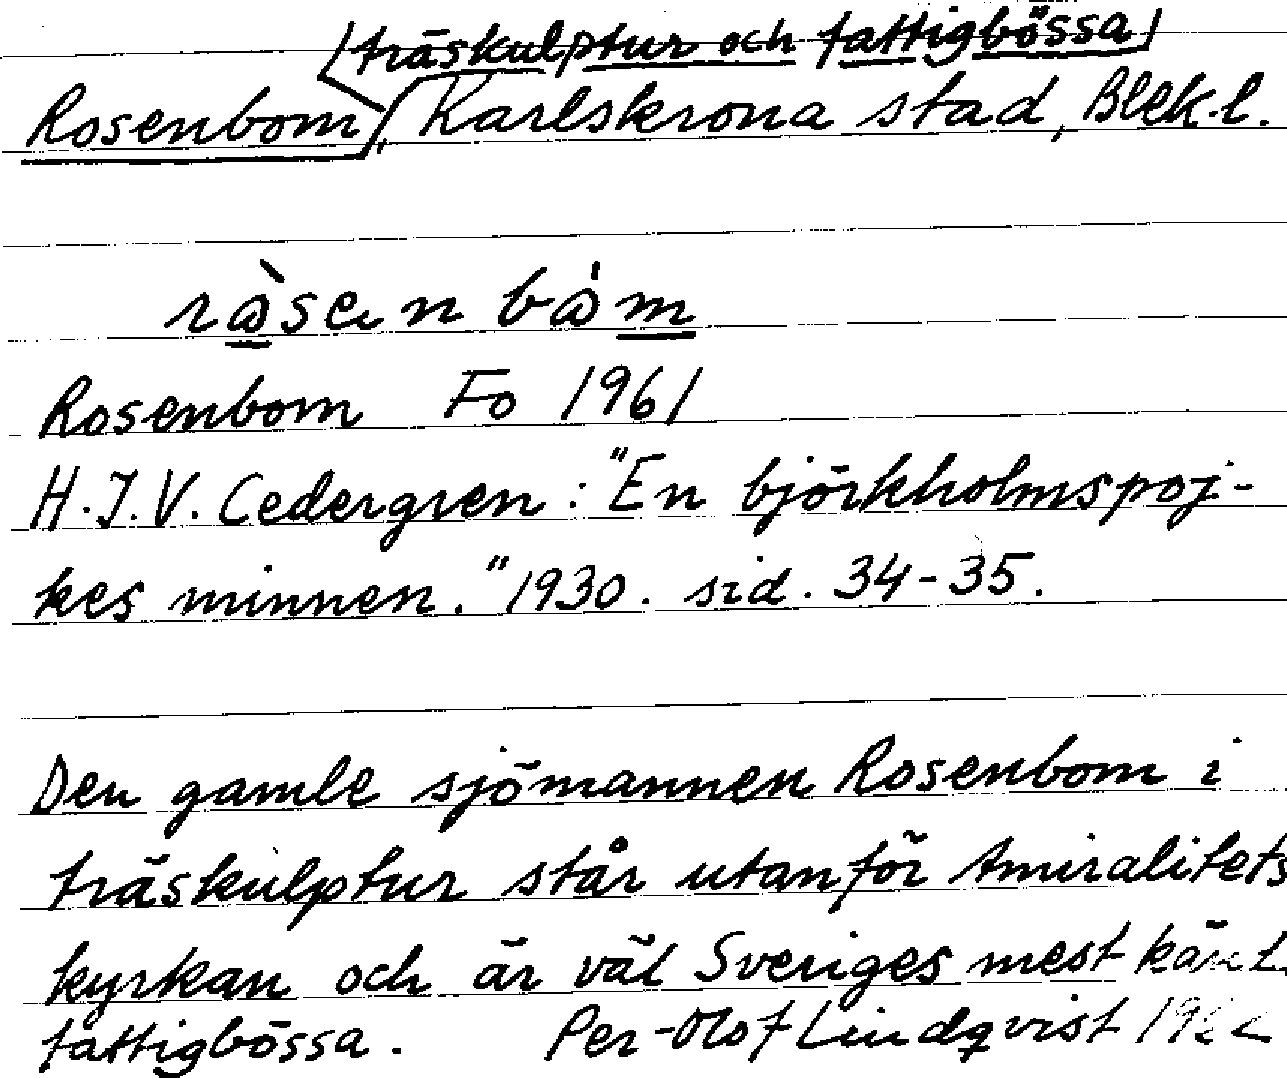 träskulptur och fattigbössa
Rosenbom, Karlskrona stad, Blek.l.
Rosenbom Fo 1961
H.J.V. Cedergren: "En björkholmspoj-
kes minnen." 1930. sid. 34-35.
Den gamle sjömannen Rosenbom i
träskulptur står utanför Amiralitets
kyrkan och är väl Sveriges mest känt
fattigbössa. Per-Olof Lindqvist